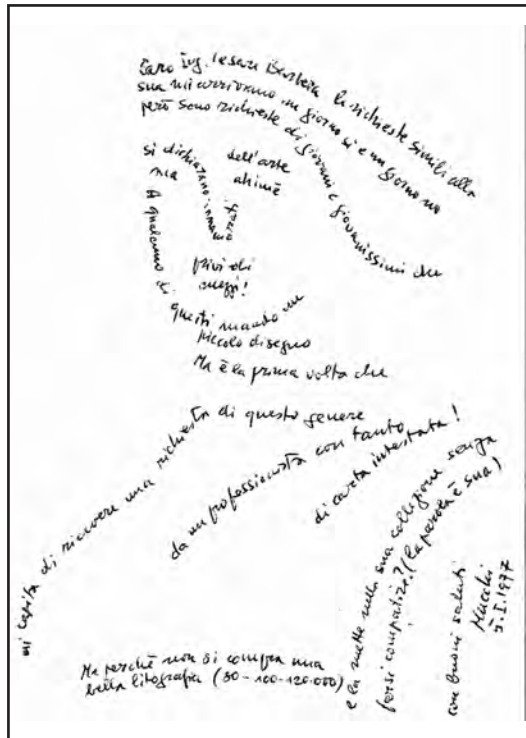 Caro Ing. Cesare Barbera le richieste simili alla
sua mi arrivano un giorno sì e un giorno no
però sono richieste di giovani e giovanissimi che
si dichiarano innamorati
dell'arte
ahimè
ma
privi di
mezzi!
A qualcuno di
questi mando un
piccolo disegno
Ma è la prima volta che
mi capita di ricevere una richiesta di questo genere
da un professionista con tanto
di carta intestata!
Ma perchè non si compra una
bella litografia (80-100-120.000)
e la mette nella sua collezione senza
farsi compatire? (la parola è sua)
con buoni saluti
5.I.1997